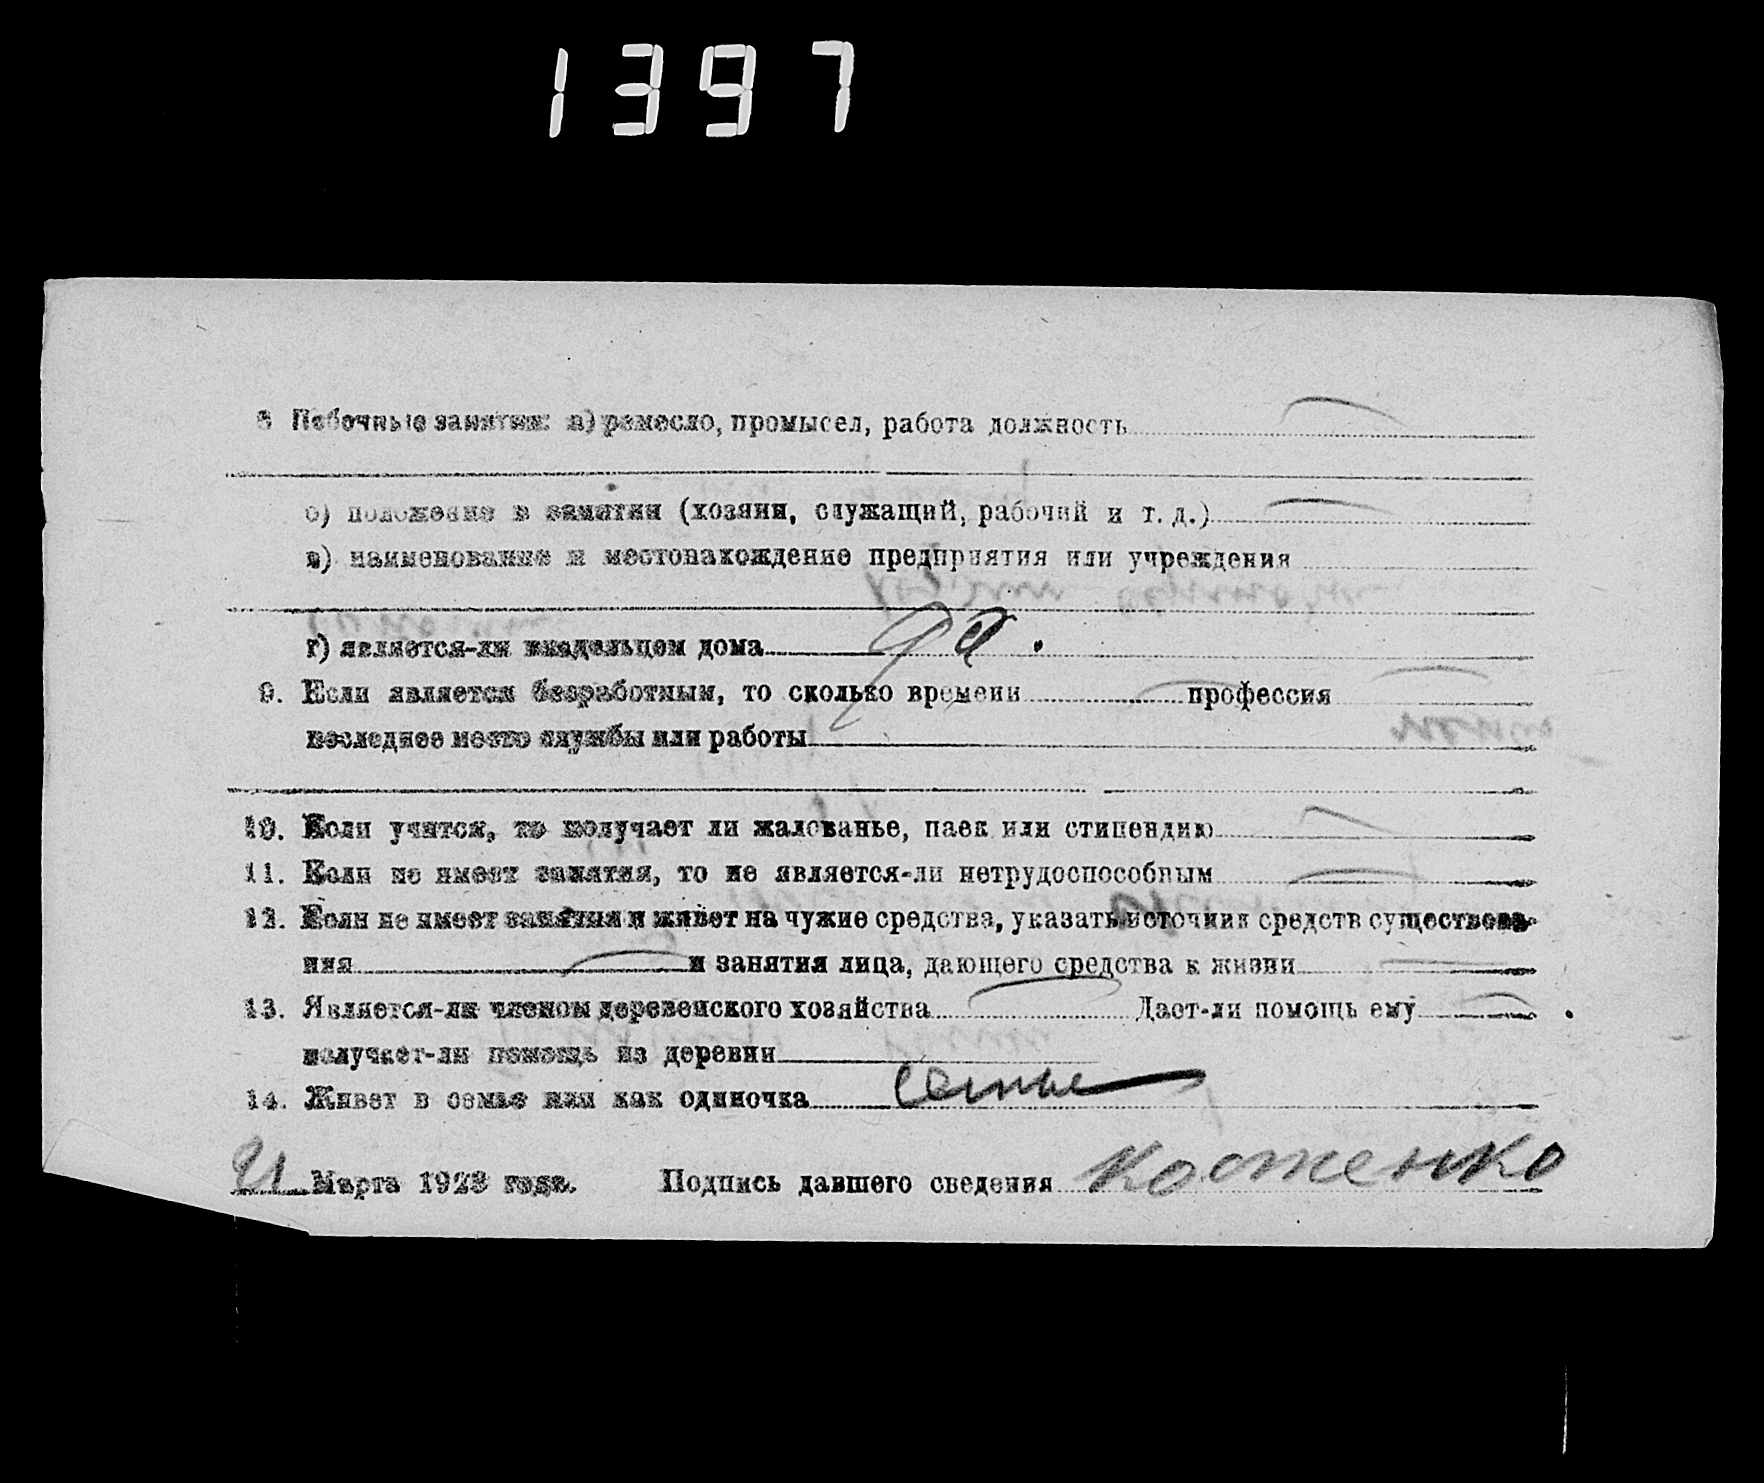 1397
8 Побочные занятия: а) ремесло, промысел, работа должность
б) положение в занятии (хозяин, служащий, рабочий и т. д.)
в) наименование и местонахождение предприятия или учреждения
г) является-ли владельцем дома да.
9. Если является безработным, то сколько времени профессия
последнее место службы или работы
10. Если учится, то получает ли жалованье, паек или стипендию
11. Если не имеет занятия, то не является-ли нетрудоспособным
12. Если не имеет занятия и живет на чужие средства, указать источник средств существова-
ния и занятия лица, дающего средства к жизни
13. Является-ли членом деревенского хозяйства Дает-ли помощь ему
получает-ли помощь из деревни
14. Живет в семье или как одиночка семье
Марта 1923 года. Подпись давшего сведения Костенко